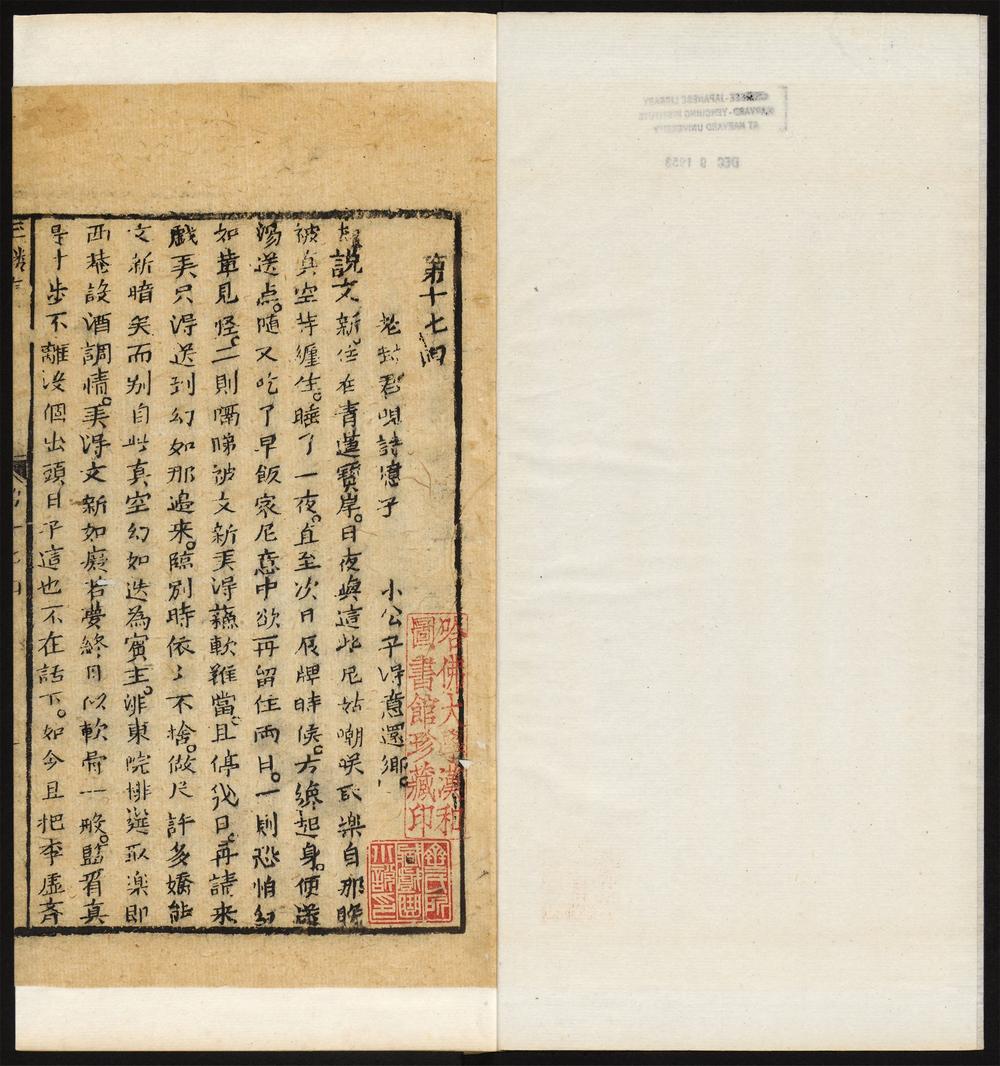 第十七回
老封君唄詩憶子　小公子得意還鄉
說文新住在青蓮寶岸。日夜與這些尼姑嘲笑取樂自那晚
被真空苦纏住。睡了一夜。直至次日辰牌時候。方纔起身。便送
湯送点。隨又吃了早飯家尼意中欲再留住兩日。一則恐怕幻
如輩見怪。二則
被文新弄得
軟難當。且停幾日。再請來
戲弄只得送到幻如那邊來。臨別時依〻不捨。做尽許多嬌態
文新暗笑而別自此真空幻如迭為賓主。
東院排選取楽即
西菴設酒調情。弄得文新如癡若夢終日似軟骨一般。
看真
是寸步不離没個出頭日子這也不在話下。如今且把李虛斉
哈佛大學漢和
圖書館珍藏印
齊氏所
藏戲曲
小說印
CHINESE-JAPANESE LIBRARY
HARVARD-YENCHING INSTITUTE
AT HARVARD UNIVERSITY
DEC 9 1953